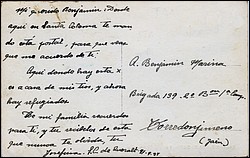 Mi querido Benjamin: Desde
aqui en Santa Coloma te man
do esta postal, para que veas
que me acuerdo de ti.
Aqui donde hay esta x
es a casa de mis tios, y ahora
hay refugiados
De mi familia recuerdos
para ti, y tu recibelos de esta
que nunca te olvida, tu
Josefina.
A. Benjamin Marina
Brigada 139-2º Bon 1ª Comp.
Torredonjimeno
(Jaen)